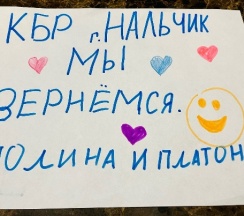 КБР г.НАЛЬЧИК
МЫ
ВЕРНЁМСЯ.
ПОЛИНА И ПЛАТОН